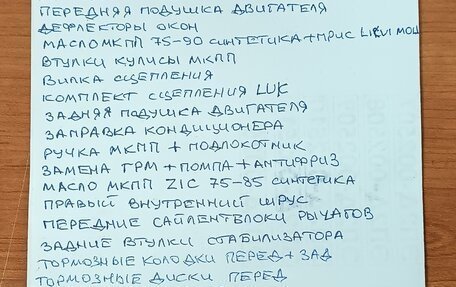 ПЕРЕДНЯЯ ПОДУШКА ДВИГАТЕЛЯ
ДЕФЛЕКТОРЫ ОКОН
МАСЛО МКПП 75-90 СИНТЕТИКА + ПРИС LIQUI МОЦ
ВТУЛКИ КУЛИСЫ МКПП
ВИЛКА СЦЕПЛЕНИЯ
КОМПЛЕКТ СЦЕПЛЕНИЯ LUK
ЗАДНЯЯ ПОДУШКА ДВИГАТЕЛЯ
ЗАПРАВКА КОНДИЦИОНЕРА
РУЧКА МКПП + ПОДЛОКОТНИК
ЗАМЕНА ГРМ + ПОМПА + АНТИФРИЗ
МАСЛО МКПП ZIC 75-85 СИНТЕТИКА
ПРАВЫЙ ВНУТРЕННИЙ ШРУС
ПЕРЕДНИЕ САЙЛЕНТБЛОКИ РЫЧАГОВ
ЗАДНИЕ ВТУЛКИ СТАБИЛИЗАТОРА
ТОРМОЗНЫЕ КОЛОДКИ ПЕРЕД + ЗАД
ТОРМОЗНЫЕ ДИСКИ ПЕРЕД